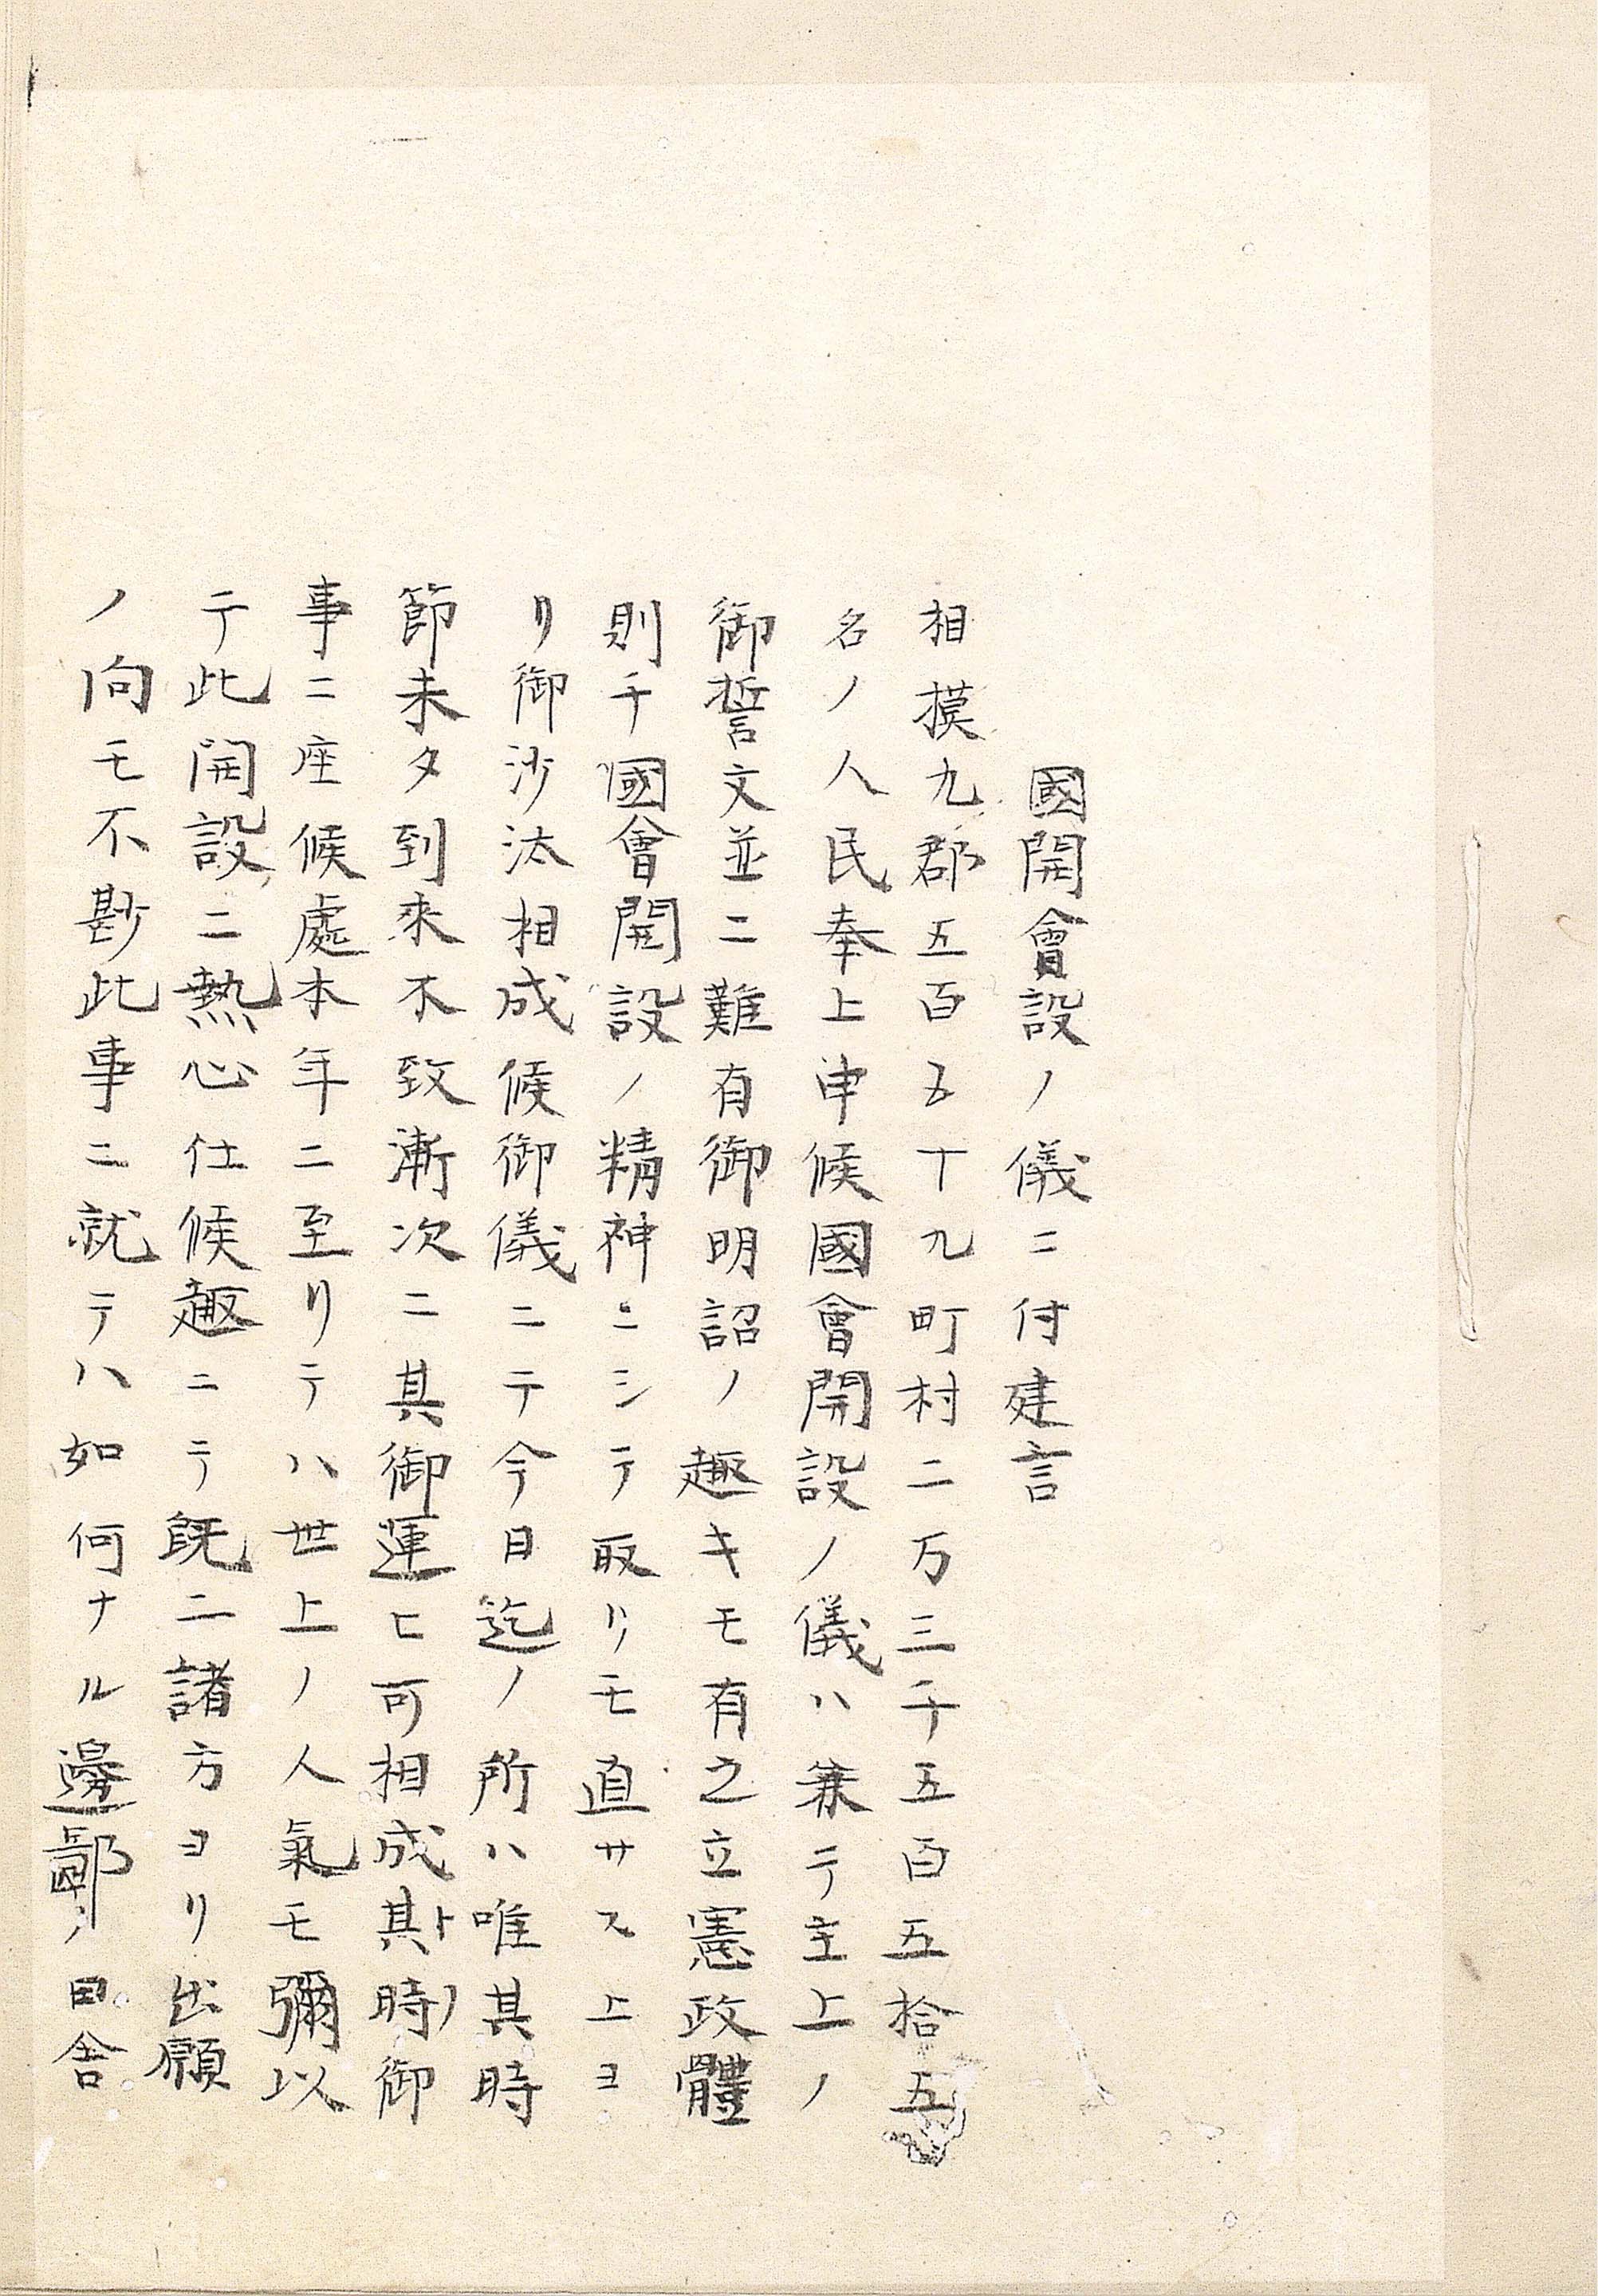 國開會設ノ儀ニ付建言
相摸九郡五百五十九町村二万三千五百五拾五
名ノ人民奉上申候國會開設ノ儀ハ兼テ主上ノ
御誓文並ニ難有御明詔ノ趣キモ有之立憲政體
則チ國會開設ノ精神ニシテ取リモ直サス上ヨ
リ御沙汰相成候御儀ニテ今日迄ノ所ハ唯其時
節未タ到來不致漸次ニ其御運ヒ可相成其時御
事ニ座候處本年ニ至リテハ世上ノ人氣モ彌以
テ此開設ニ熱心仕候趣ニテ既ニ諸方ヨリ出願
ノ向モ不尠此事ニ就テハ如何ナル邊鄙ノ田舎